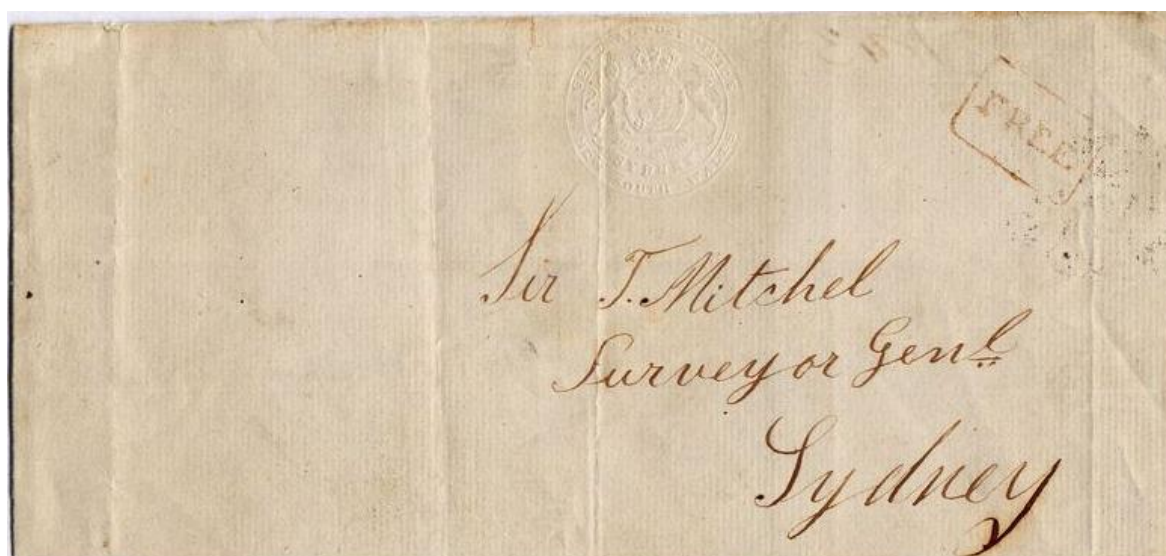 FREE
Sir T. Mitchel
Surveyor Genl
Sydney